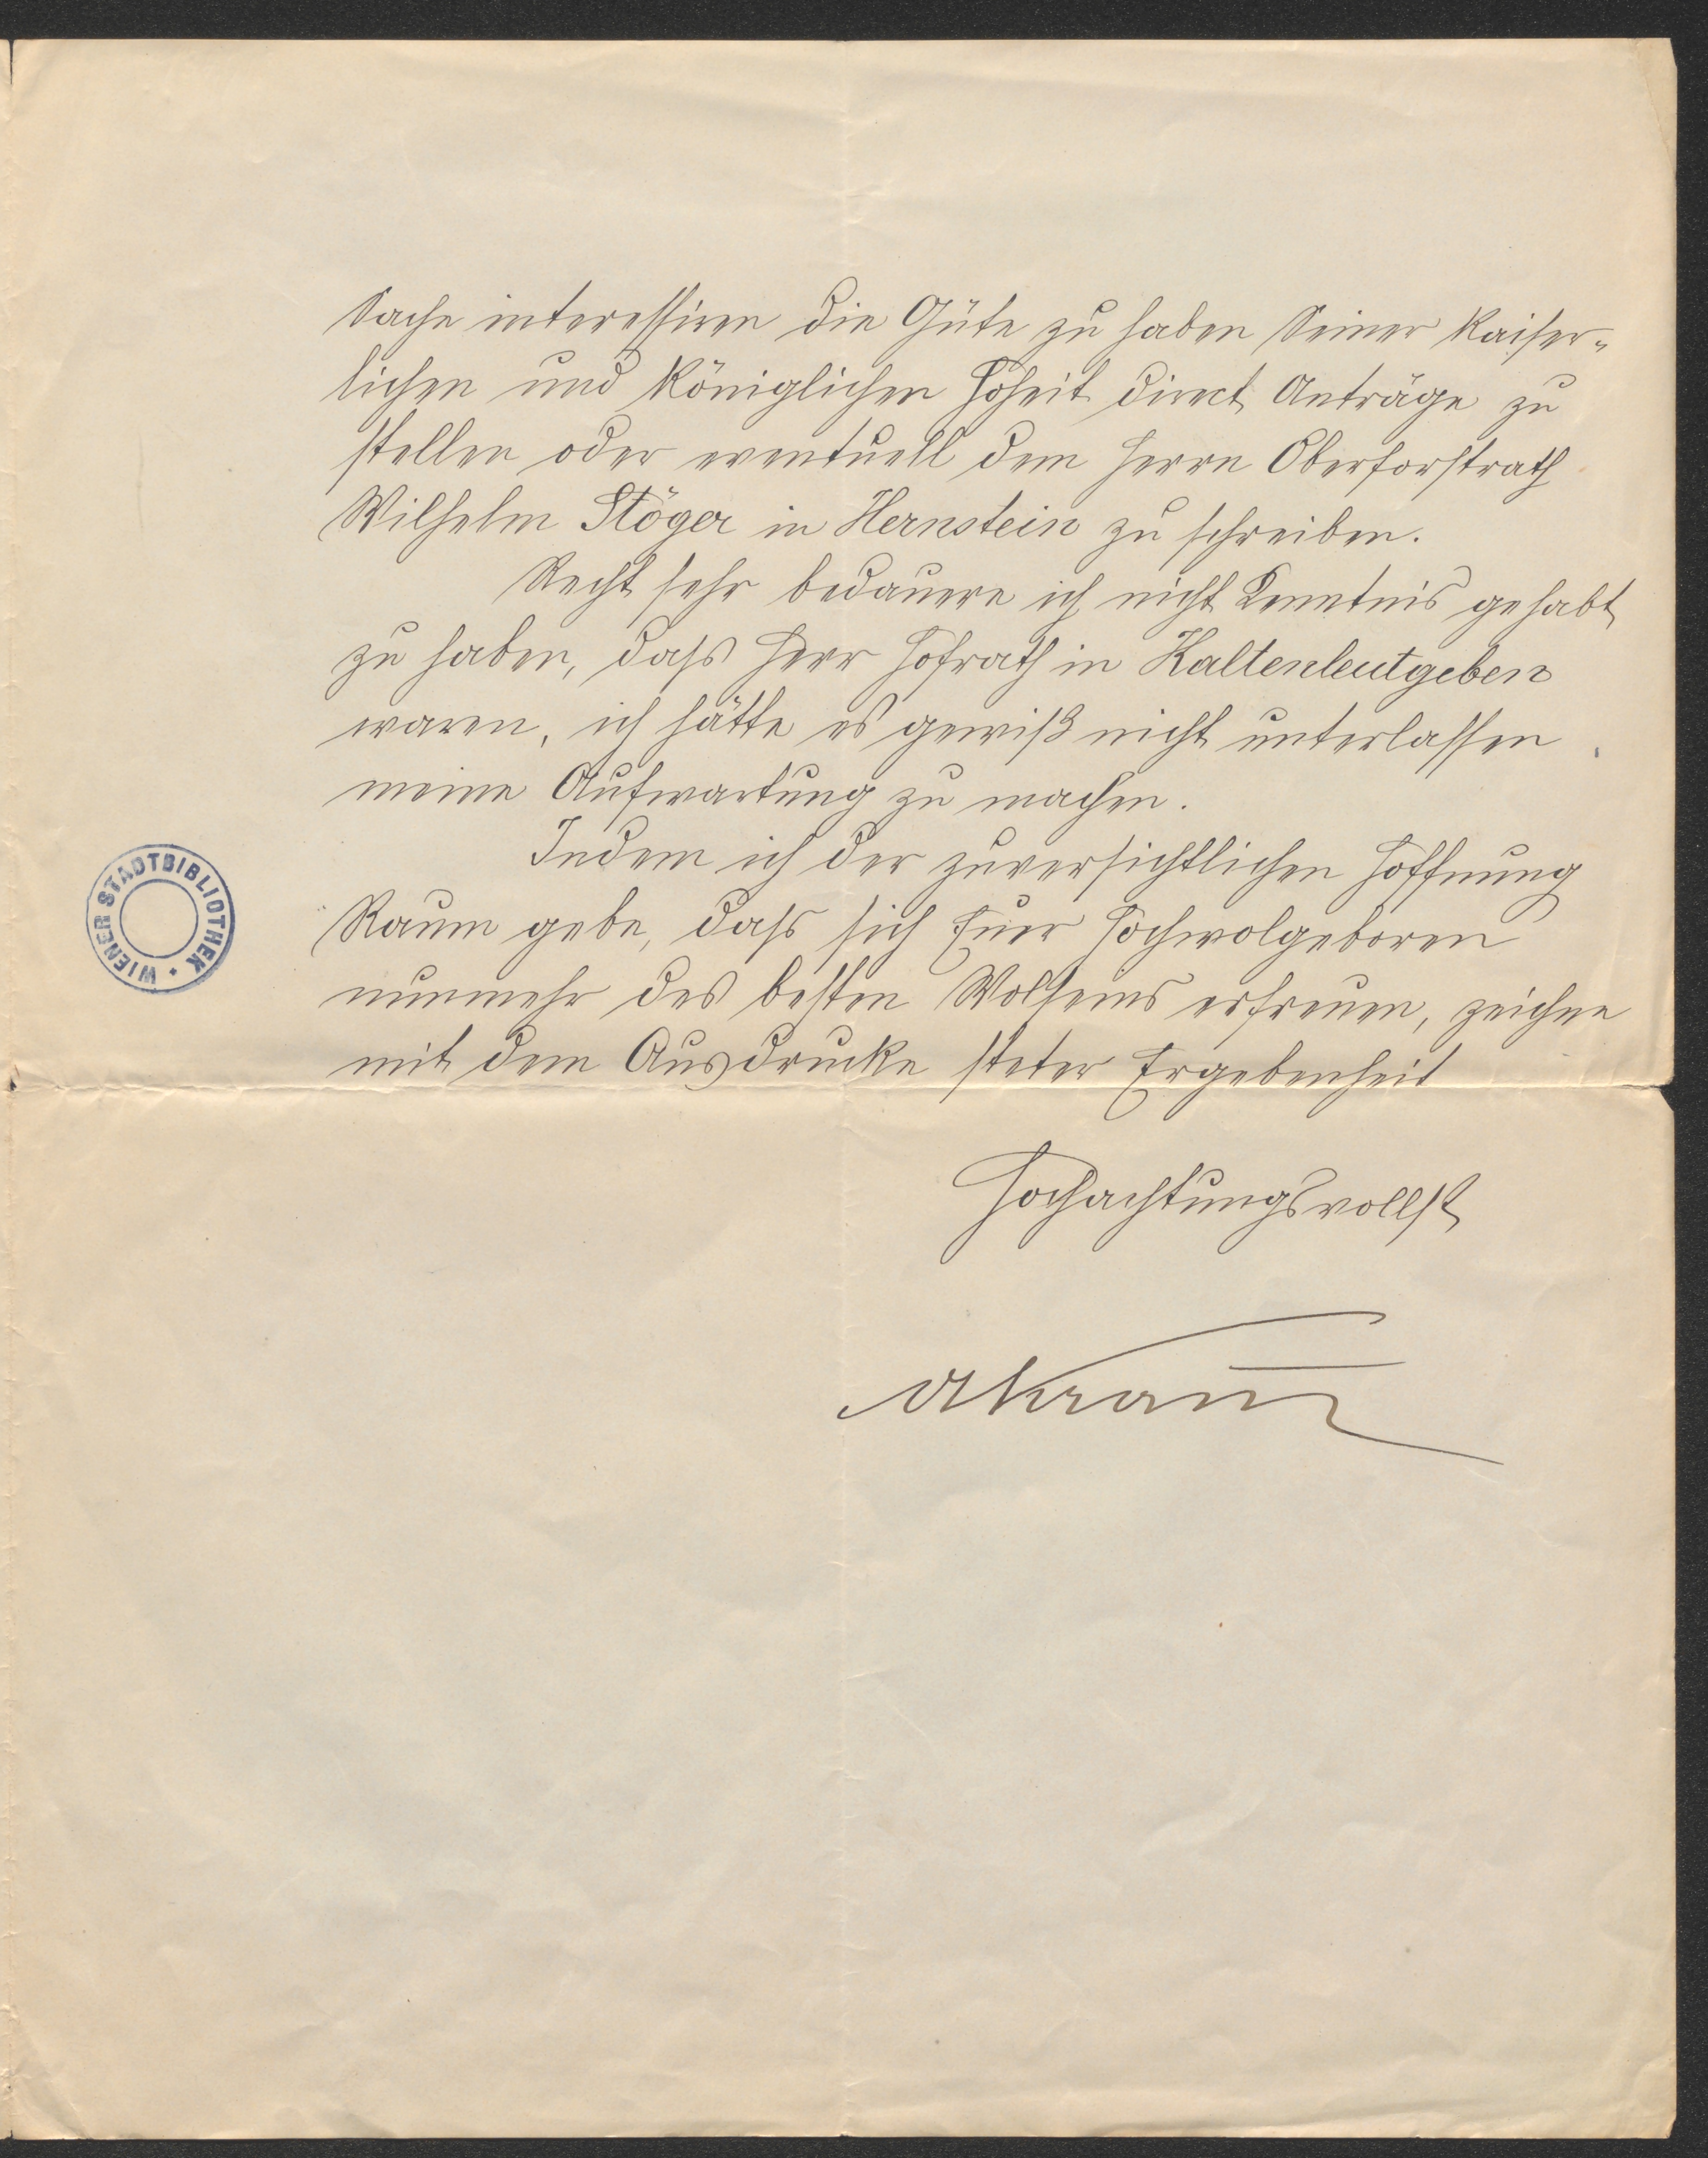 Sache interessiren die Güte zu haben Seiner Kaiser-
lichen und Königlichen Hoheit direct Anträge zu
stellen oder eventuell dem Herrn Oberforstrath
Wilhelm Stöger in Hernstein zu schreiben.
Recht sehr bedauere ich nicht Kenntnis gehabt
zu haben, dass Herr Hofrath in Kaltenleutgeben
waren, ich hätte es gewiß nicht unterlassen
meine Aufwartung zu machen.
Indem ich der zuversichtlichen Hoffnung
Raum gebe, dass sich Euer Hochwolgeboren
nunmehr des besten Wolseins erfreuen, zeichne
mit dem Ausdrucke steter Ergebenheit
Hochachtungsvollst
WIENER STADTBIBLIOTHEK